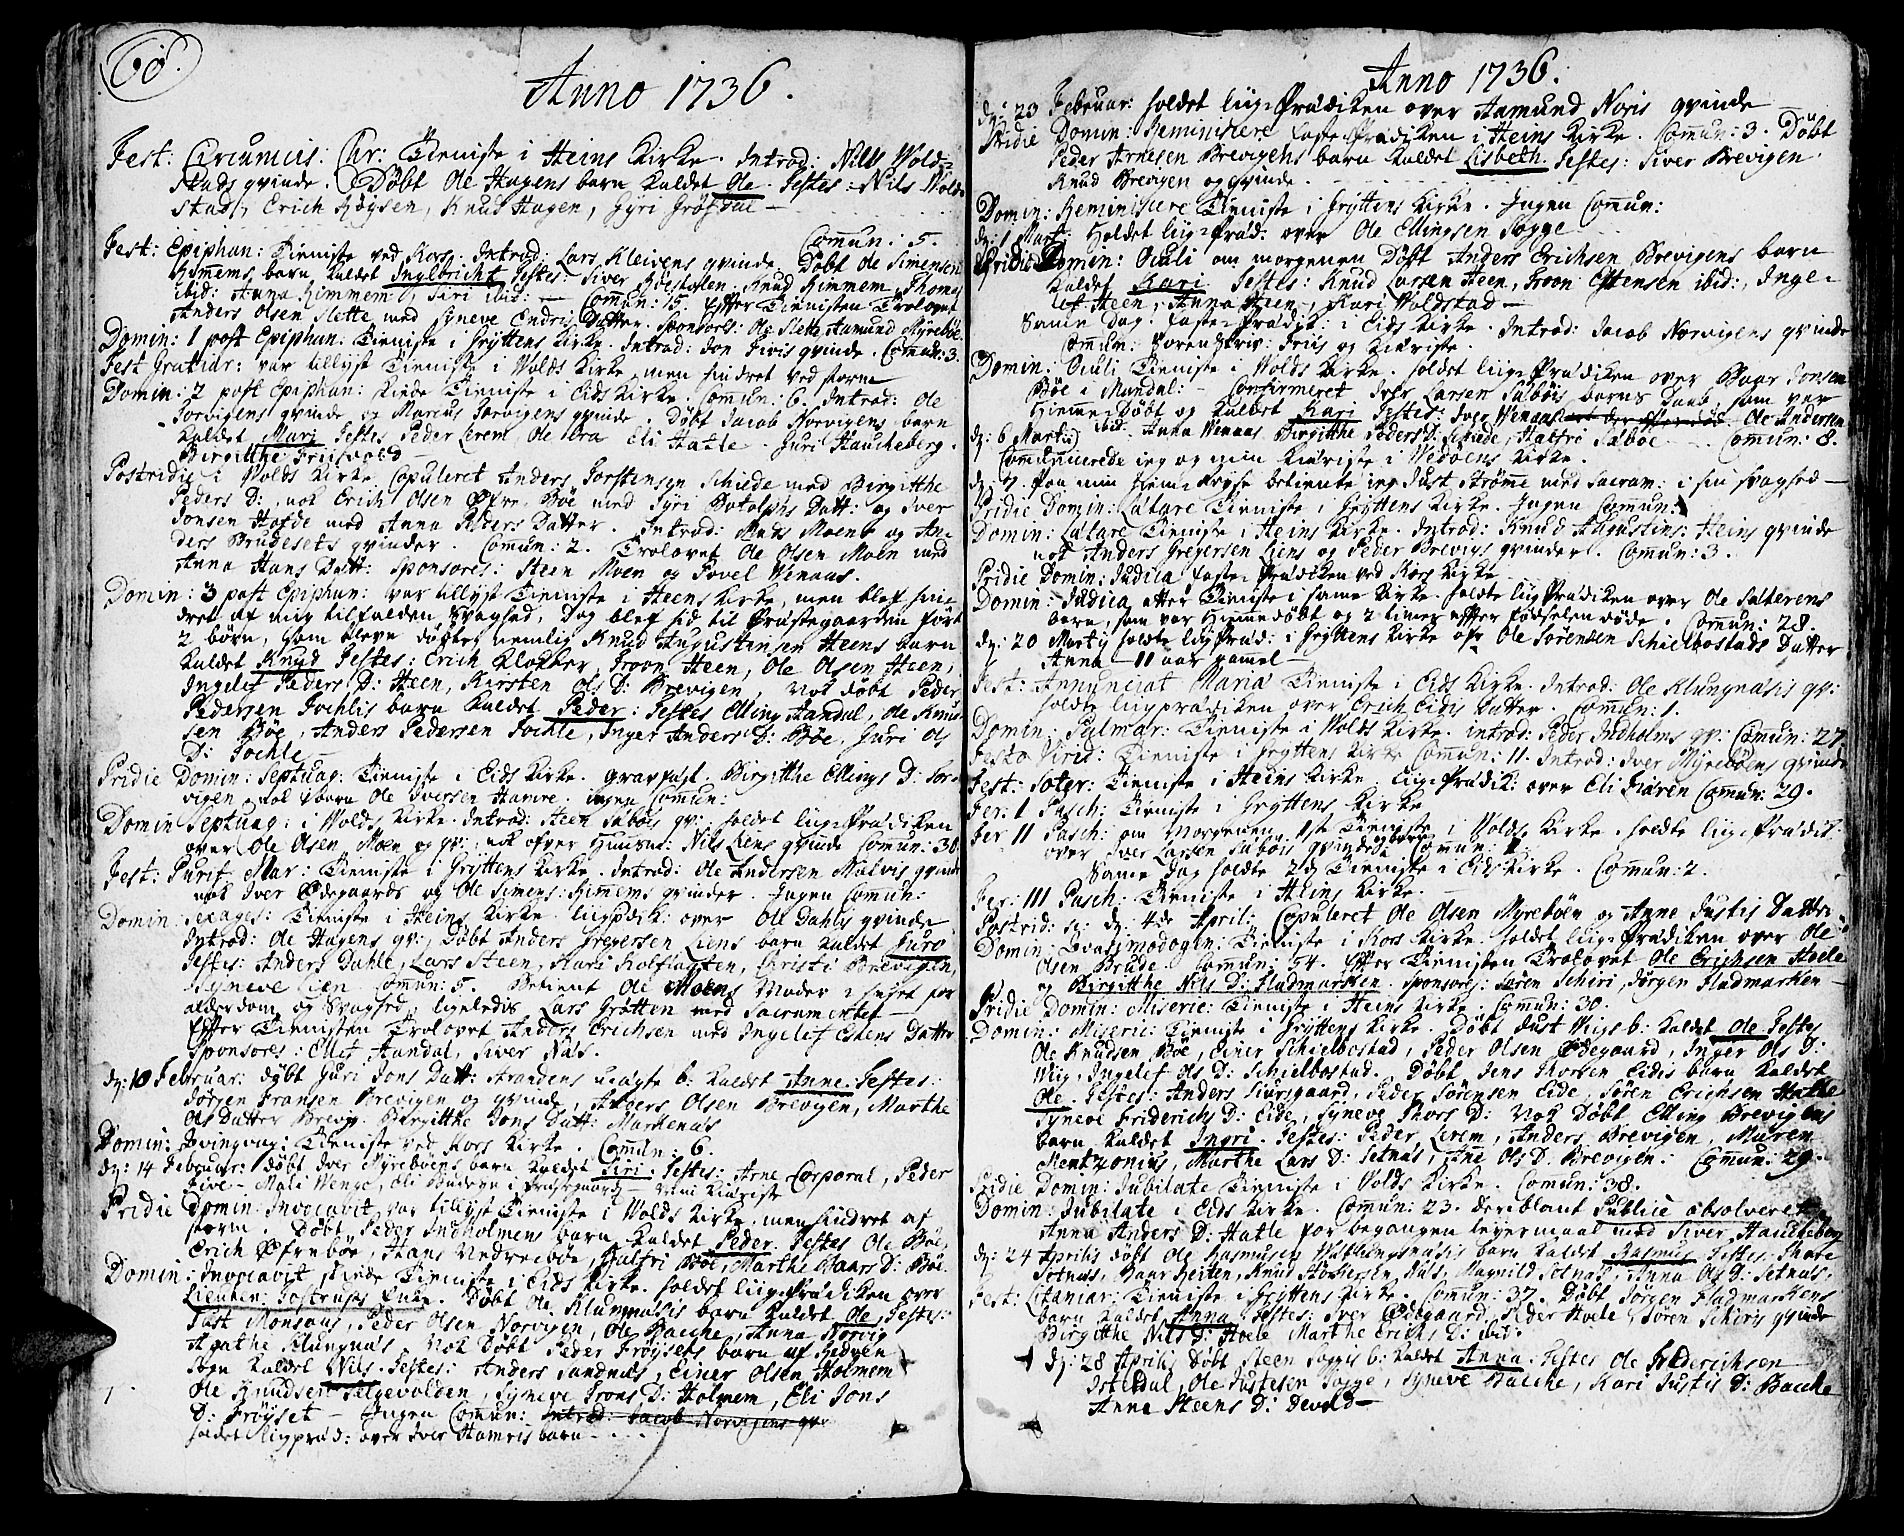 60.
Anno 1736.
Fest: Circumcis: Chr: Tieniste i Heins Kirke. Introd: Nils Wold-
stads qvinde. Døbt Ole Hagens barn kaldet Ole. Testes: Nils Wold-
stad, Erich Røysen, Knud Hagen, Gyri Grøsdal —
Comun: 5.
Fest: Epiphan: Tieniste ved Kors. Introd: Lars Kleivens qvinde. Døbt Ole Simensen
Rimems barn kaldet Ingelbricht Testes: Siver Knud Rimmem, Thomes
ibid: Anna Rimmem, Siri ibid: — Comun: 15. Effter Tienisten Trolovet
Anders Olsen Slette med Syneve Endris Datter. Sponsores: Ole Slette, Aamund Myrebøe.
Domin: 1 post Epiphan: Tieniste i Gryttens Kirke. Introd: Jon qvinde. Comun: 3.
Fest Gratiar: var tillyst Tieniste i Wolds Kirke, men hindret ved storm
Domin: 2 post Epiphan: hiede Tieniste i Eids Kirke. Comun: 6. Introd: Ole
Torvigens qvinde og Marcus Torvigens qvinde. Døbt Jacob Norvigens barn
kaldet Mari Testes Peder Lerem, Ole Bra Eli Hatle. Guri Haucheberg.
Birgitthe Friisvold —
Postridie i Wolds Kirke Copuleret Anders Torstensen Schiede med Birgitthe
Peders D: nok Erich Olsen Øfre Bøe med Gyri Botolphs Datt: og Iver
Jonsen Hofde med Anna Peders Datter. Introd: Mads Moens og An-
ders Brudesets qvinder. Comun: 2. Trolovet Ole Olsen Moen med
Anna Hans Datt: Sponsores: Steen Moen og Povel Wenaas.
Domin: 3 post Epiphan: var tillyst Tieniste i Heens Kirke, men blef hin-
dret af mig tilfalden Svaghed, Dog blef hid til Præstegaarden ført
2 børn, som bleve døbte, nemlig Knud Augustinsen Heens barn
kaldet Knud Testes: Erich Klokker, Troon Heen, Ole Olsen Heen,
Ingelef Peders D: Heen, Karsten Ols D: Brevigen, nok døbt Peder
Pedersen Sochlis barn kaldet Peder: Testes Elling Aandal, Ole Knud-
sen Bøe, Anders Pedersen Sochle, Inger Anders D: Bøe, Guri Ols
D: Sochle —
Pridie Domin: Septuag: Tieniste i Eids Kirke. gravfæst. Birgitthe Ellings D: Tor-
vigen nok barn Ole Iversen Hamre. ingen Comun:
Domin Septuag: i Wolds Kirke. Introd: Steen Sæbøis qv: holdet liig-Prædiken
over Ole Olsen Moen og qv: nok ofver Nils Liens qvinde Comun: 30
Fest: Purif. Mar: Tieniste i Gryttens Kirke. Introd: Ole Andersen Malvis qvinde
nok Iver Ødegaards og Ole Simens: Rimems qvinder. Ingen Comun:
Domin: Sexages: Tieniste i Heins Kirke. liigpræd: over Ole Dahlis qvinde
Introd: Ole Hagens qv: Døbt Anders Gregersen Liens barn kaldet Guro
Testes: Anders Dahle, Lars Steen, Kari Kolflaaten, Christi Brevigen,
Syneve Lien Comun: 5. Betient Ole Moens Moder i huset for
alderdom og Svaghed, ligeledis Lars Grøtten med Sacramentet —
Effter Tienisten Trolovet Anders Erichsen med Ingelef Estens Datter
Sponsores: Ellef Aandal, Siver Næs.
d: 10 Februar: døbt Guri Jons Datt: Strandens uægte b: kaldet Anne. Testes:
Jørgen Fransen Brevigen og qvinde, Anders Olsen Brevigen, Marthe
Ols Datter Brevig. Birgitthe Jons Datt: Markenæs
Domin: Qvinqvag: Tieniste ved Kors Kirke. Comun: 6.
d: 14 Februar: døbt Iver Myrebøens barn kaldet Siri. Testes: Arne Corporal, Peder
Five — Mali Wenge, Eli Budeye i Præstegaarden — min Kiæriste
Pridie Domin: Invocavit var tillyst Tieniste i Wolds Kirke, men hindret af
storm. Døbt Peder Indholmens barn kaldet Peder. Testes Ole Bøe,
Erich Øfrebøe, Hans Nedrebøe, Halfri Bøe, Marthe Baars D: Bøe.
Domin: Invocavit skiede Tieniste i Eids Kirke. holdet liig-Prædiken over
Lieuten: Enke. Døbt Ole Klumnæsis barn kaldet Ole, Testes:
Just Monsaas, Peder Olsen Norvigen, Ole Bacche, Anna Norvig
Agathe Klungnæs. Nok Døbt Peder Frøysets barn af Redven
Sogn kaldet Nils. Testes: Anders Sandnæs, Einer Olsen Holmem
Ole Knudsen Helgevolden, Syneve Trons D: Holmem, Eli Jons
D: Frøyset — Ingen Comun: Introd: Jacob Norvigens qv
holdet liigpræd: over Iver Hamris barn —
Anno 1736.
d: 23 Februar: holdet liig-Prædiken over Aamund Noris qvinde
Pridie Domin: Reminiscere faste-Prædiken i Heins Kirke. Comun: 3. Døbt
Peder Arnesen Brevigens barn kaldet Lisbeth. Testes: Siver Brevigen.
Knud Brevigen og qvinde.
Domin: Reminiscere Tieniste i Gryttens Kirke. Ingen Comun:
d: 1 Mart: Holdet liig-Præd: over Ole Ellingsen Sogge
Pridie Domin: Oculi om morgenen Døbt Anders Erichsen Brevigens barn
kaldet Kari Testes: Knud Larsen Heen, Troon Estensen ibid:, Inge-
lef Heen, Anna Heen, Kari Woldstad —
Samme Dag faste-Prædik: i Eids Kirke. Introd: Jacob Norvigens qvinde
Comun: Sorenskriv: Friis og Kiæriste.
Domin: Oculi Tieniste i Wolds Kirke. holdt liig-Prædiken over Baar Jonsen
Bøe i Mandal: Confirmeret Iver Larsen Sæbøis barns Daab, som var
Hiemme-Døbt og kaldet Kari Testes: Iver Wenaas Ole Andersen
ibid. Anna Wenaas Birgitthe Peders D: Schiede, Halfri Sæbøe — Comun: 8.
d: 6 Martii
Communicerede ieg og min Kiæriste i Wedøens Kirke.
d: 7. paa min Hiem-Reyse betiente ieg Just Strøme med Sacram: i sin Svaghed —
Pridie Domin: Lætare Tieniste i Gryttens Kirke. Ingen Comun:
Domin: Lætare Tieniste i Heins Kirke. Introd: Knud Augustins: Heins qvinde
nok Anders Gregersen Liens og Peder Brevigs qvinder. Comun: 3.
Pridie Domin: Judica faste-Prædiken ved Kors Kirke
Domin: Judica atter Tieniste i samme Kirke. holdte liig-Prædiken over Ole Salterens
barn, som var Hiemmedøbt og 2 timer effter fødselen døde. Comun: 28.
d: 20 Marty holdte liigPræd: i Gryttens Kirke ofr Ole Sørensen Schielbostads Datter
Anna — 11 aar gammel —
Fest: Annunciat Mariæ Tieniste i Eids Kirke. Introd: Ole Klungnæsis qv:
holdte liigprædiken over Erich Eidis Datter. Comun: 1.
Domin: Palmar: Tieniste i Wolds Kirke. introd: Peder Indholms qv: Comun: 27
Festo Virid: Tieniste i Gryttens Kirke Comun: 11. Introd: Iver Myrebøens qvinde
Fest: Soter: Tieniste i Heins Kirke. liig-Prædik: over Eli Comun: 29.
Fer: 1 Pasch: Tieniste i Gryttens Kirke
Fer 11 Pasch: om Morgenen 1ste Tieniste i Wolds Kirke. holdte liig-Prædik:
over Iver Larsen Sæbøis qvinde og barn Comun: 1.
Samme dag holdte 2d Tieniste i Eids Kirke. Comun: 2.
Fer: 111 Pasch: Tieniste i Heins Kirke. —
Postrid: d: 4de April: Copuleret Ole Olsen Myrebøen og Anne Justis Datter
Domin: Qvasimodogen: Tieniste i Kors Kirke. holdet liig-Prædiken over Ole
Olsen Brude. Comun: 54. Effter Tienisten Trolovet Ole Erichsen Hoele
og Birgitthe Nils D: Fladmarsken. Sponsores: Søren Schiri, Jørgen Fladmarken —
Pridie Domin: Miserie: Tieniste i Heins Kirke. Comun: 30.
Domin: Miseric: Tieniste i Gryttens Kirke. Døbt Just Wiigs b: kaldet Ole Testes
Ole Knudsen Bøe, Einer Schielbostad, Peder Olsen Ødegaard, Inger Ols D:
Wiig, Ingelef Ols D: Schielbostad. Døbt Jens Thorsen Eidis barn kaldet
Ole. Testes: Anders Siursgaard, Peder Sørensen Eide, Søren Erichsen Hatle
Syneve Friderichs D: Eide, Syneve Thors D: Nok Døbt Elling Brevigens
barn kaldet Ingri. Testes: Peder Lerem, Anders Brevigen, Maren
Mentzonius, Marthe Lars D: Setnæs, Ane Ols D. Brevigen: Comun: 29.
Pridie Domin: Jubilate Tieniste i Wolds Kirke. Comun: 38.
Domin: Jubilate i Eids Kirke. Comun: 23. deriblant Publice absolveret
Anna Anders D: Hatle for begangen leyermaal med Siver Haucheberg
d: 24 Aprilis døbt Ole Rasmusen Watlungsnæsis barn kaldet Rasmus Testes Thore
Sotnæs, Baar Reiten, Knud Størkersen Næs, Magnild Sotnæs, Anna Ols D: Setnæs,
Fest: Litaniar: Tieniste i Gryttens Kirke. Comun: 37. Døbt Jørgen Fladmarskens
barn kaldet Anna, Testes: Iver Ødegaard, Peder Hoele, Søren Schiris qvinde
Birgitthe Nils D: Hoele Marthe Erichs D: ibid:
d: 28 Aprilis Døbt Steen Soggis b: kaldet Anna. Testes Ole Friderichsen
Isterdal, Ole Justesen Sogge, Syneve Bacche, Kari Justis D: Bacche
Anna Steens D: Devold —